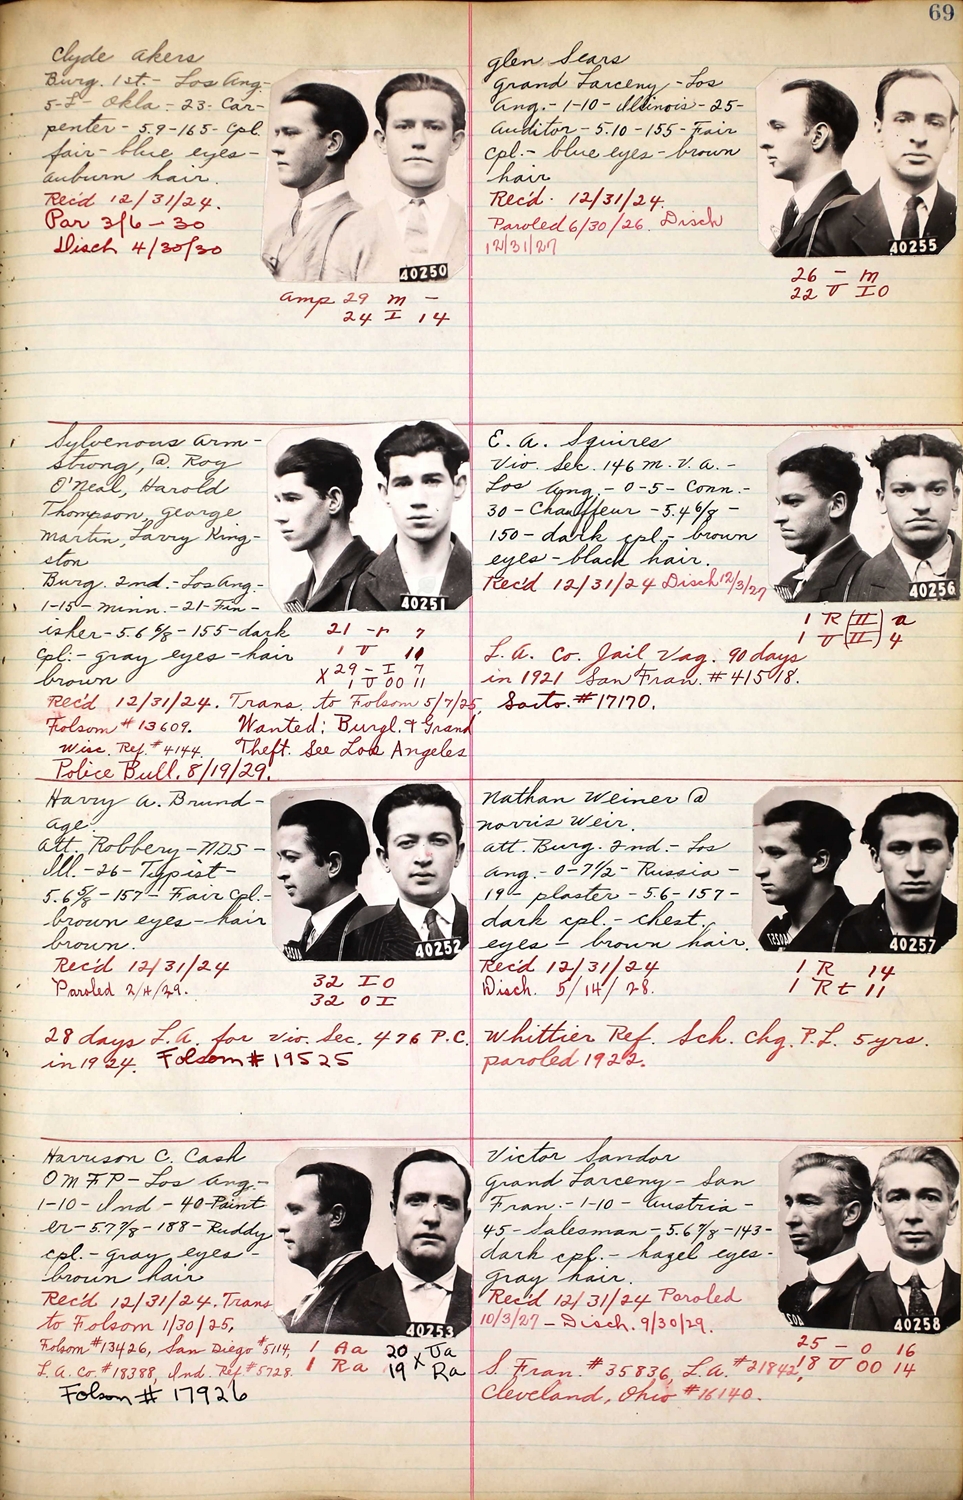 69
Clyde Akers
Burg. 1st.- Los Ang-
5-L- Okla - 23- Car-
penter - 5.9-165- Cpl.
fair - blue eyes -
auburn hair.
Rec'd 12/31/24.
Par 3/6 - 30
Disch 4/30/30
40250
Amp 29 M -
24 I 14
Sylvenous Arm-
strong, @ Roy
O'Neal, Harold
Thompson, George
Martin, Larry King-
ston
Burg. 2nd.- Los Ang.-
1-15- Minn. - 21- Fin-
isher - 5.6 5/8 - 155 - dark
Cpl:- gray eyes - hair
brown
40251
21 -r 7
1 U 11
X 29 - I 7
1 U OO 11
Rec'd 12/31/24. Trans. to Folsom 5/7/25,
Folsom #13609. Wanted: Burgl. & Grand
Wisc. Ref. #4144. Theft. See Los Angeles
Police Bull. 8/19/29.
Harry A. Brund-
age.
Att. Robbery - NDS -
Ill. - 26 - Typist -
5.6 5/8 - 157 - Fair Cpl.-
brown eyes - hair
brown.
Rec'd 12/31/24
Paroled 2/4/29.
40252
32 I O
32 O I
28 days L.A. for Vio. Sec. 476 P.C.
in 1924. Folsom # 19525
Harrison C. Cash
O M F P - Los Ang.-
1-10 - Ind - 40 - Paint
er - 5.7 7/8 - 188 - Ruddy
cpl.- gray eyes -
brown hair
Rec'd 12/31/24. Trans
to Folsom 1/30/25,
Folsom #13426, San Diego #5114,
L.A. Co. #18388, Ind. Ref #5728.
Folsom # 17926
40253
1 Aa 20 X Ua
1 Ra 19 Ra
Glen Sears
Grand Larceny - Los
Ang. - 1-10 - Illinois - 25-
Auditor - 5.10 - 155 - Fair
cpl.- blue eyes - brown
hair
Rec'd. 12/31/24.
Paroled 6/30/26. Disch
12/31/27
40255
26 - M
22 U IO
E. A. Squires
Vio. Sec. 146 M. V. A. -
Los Ang. - 0-5- Conn.-
30 - Chauffeur - 5.4 6/8 -
150 - dark cpl.- brown
eyes - black hair.
Rec'd 12/31/24 Disch 12/3/27
40256
1 R (II) a
1 U (II) 4
L. A. Co. Jail Vag. 90 days
in 1921 San Fran. # 41518.
Sacto. #17170.
Nathan Weiner @
Norris Weir.
Att. Burg. 2nd. - Los
Ang. - 0-7 1/2 - Russia -
19 - plaster - 5.6 - 157 -
dark cpl. - chest.
eyes - brown hair.
Rec'd 12/31/24
Disch. 5/14/28.
40257
1 R 14
1 Rt 11
Whittier Ref. Sch. chg. P.L. 5 yrs.
paroled 1922.
Victor Sandor
Grand Larceny - San
Fran. - 1-10 - Austria -
45 - Salesman - 5.6 7/8 - 143-
dark cpl. - hazel eyes-
gray hair.
Rec'd 12/31/24 Paroled
10/3/27 - Disch. 9/30/29.
40258
25 - O 16
18 U OO 14
S. Fran. #35836, L.A. #21842,
Cleveland, Ohio #16140.